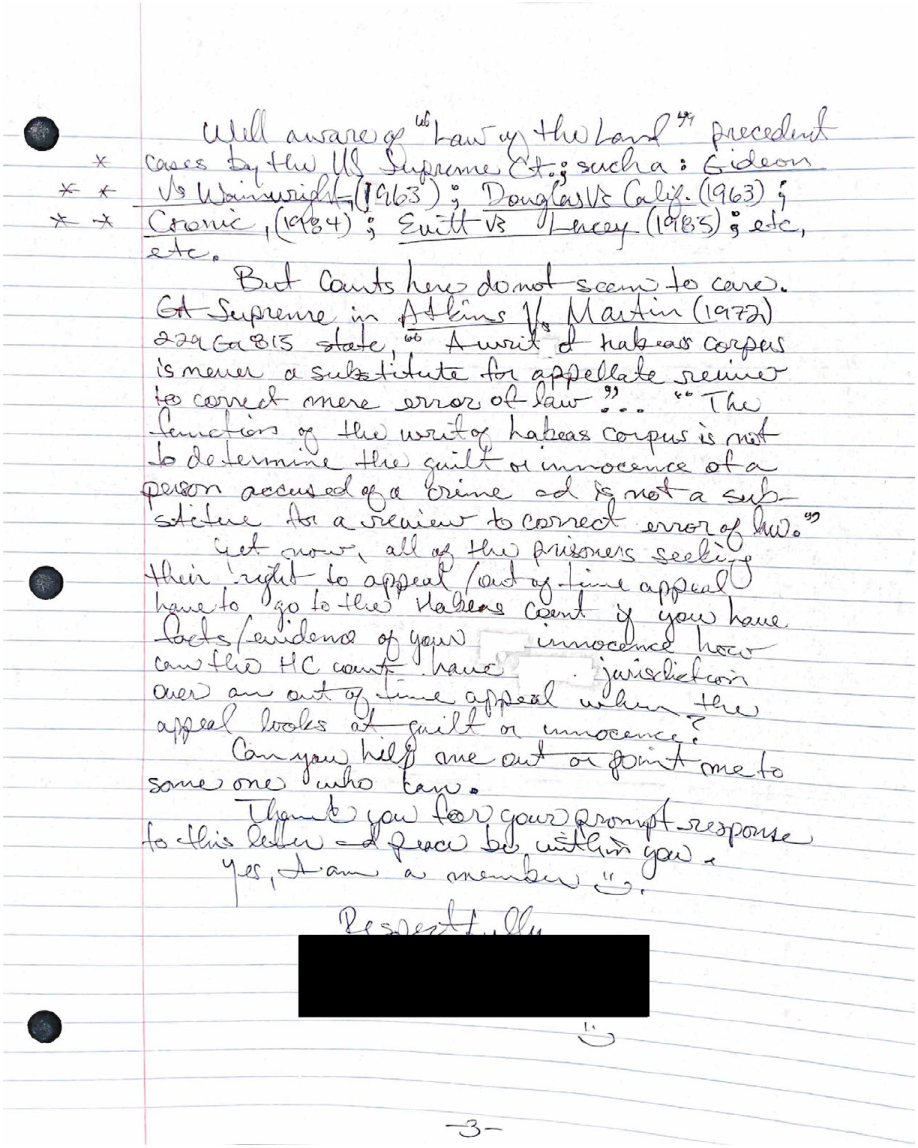 Well aware of "Law of the Land" precedent
* cases by the US Supreme Ct.; such a: Gideon
* * Vs Wainwright, (1963); Douglas Vs Calif. (1963);
* * Cronic, (1984); Evitt vs Lucey (1985); etc,
etc.
But Courts here do not seem to care.
GA Supreme in Atkins Vs Martin (1972)
229 Ga 815 state, "A writ of habeas corpus
is never a substitute for appellate review
to correct mere error of law"... "The
function of the writ of habeas corpus is not
to determine the guilt or innocence of a
person accused of a crime ad is not a sub-
stitute for a review to correct error of law."
Yet now, all of the prisoners seeking
their right to appeal/out of time appeal
have to go to the Habeas Court if you have
facts/evidence of your innocence how
can the HC court have jurisdiction
over an out of time appeal when the
appeal looks at guilt or innocence?
Can you help me out or point me to
some one who can.
Thank you for your prompt response
to this letter ad peace be within you.
Yes, I am a member
Respectfully
-3-